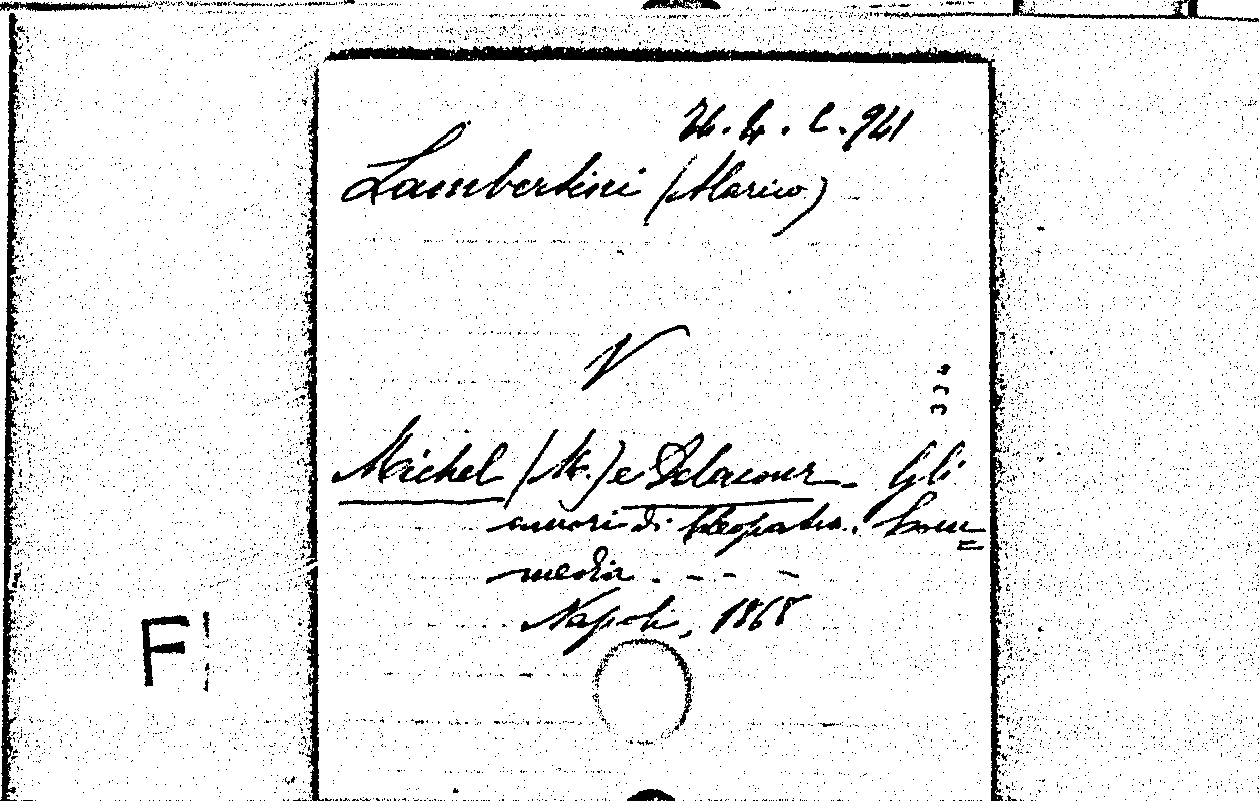 Lambertini (Marico)
V
334
Michel (M.) e Delacour. Gli
amori di Cleopatra. Com=
media. - - -
Napoli, 1868
F